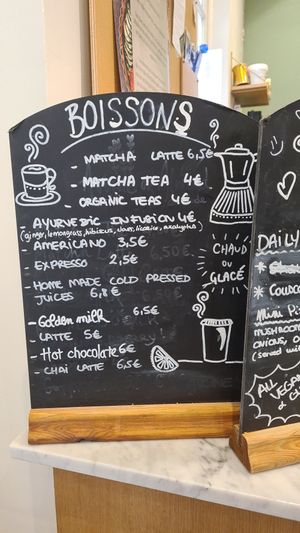 BOISSONS
- MATCHA LATTE 6,5€
- MATCHA TEA 4€
- ORGANIC TEAS 4€
- AYURVEDIC INFUSION 4€
(ginger, lemongrass, hibiscus, clover, licorice, eucalyptus)
- AMERICANO 3,5€
- EXPRESSO 2,5€
- HOME MADE COLD PRESSED
JUICES 6,8€
- Golden milk 6,5€
- LATTE 5€
- Hot chocolate 6€
- CHAI LATTE 6,5€
CHAUD
OU
GLACÉ
DAILY
Mini
MUSHROO
ONIONS,
(served
ALL
VEGAN